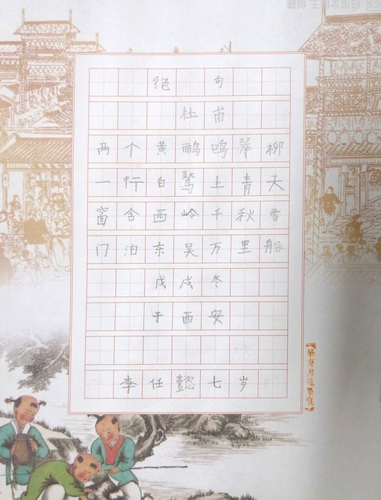 绝句
杜甫
两个黄鹂鸣翠柳
一行白鹭上青天
窗含西岭千秋雪
门泊东吴万里船
戊戌冬
于西安
李任懿七岁